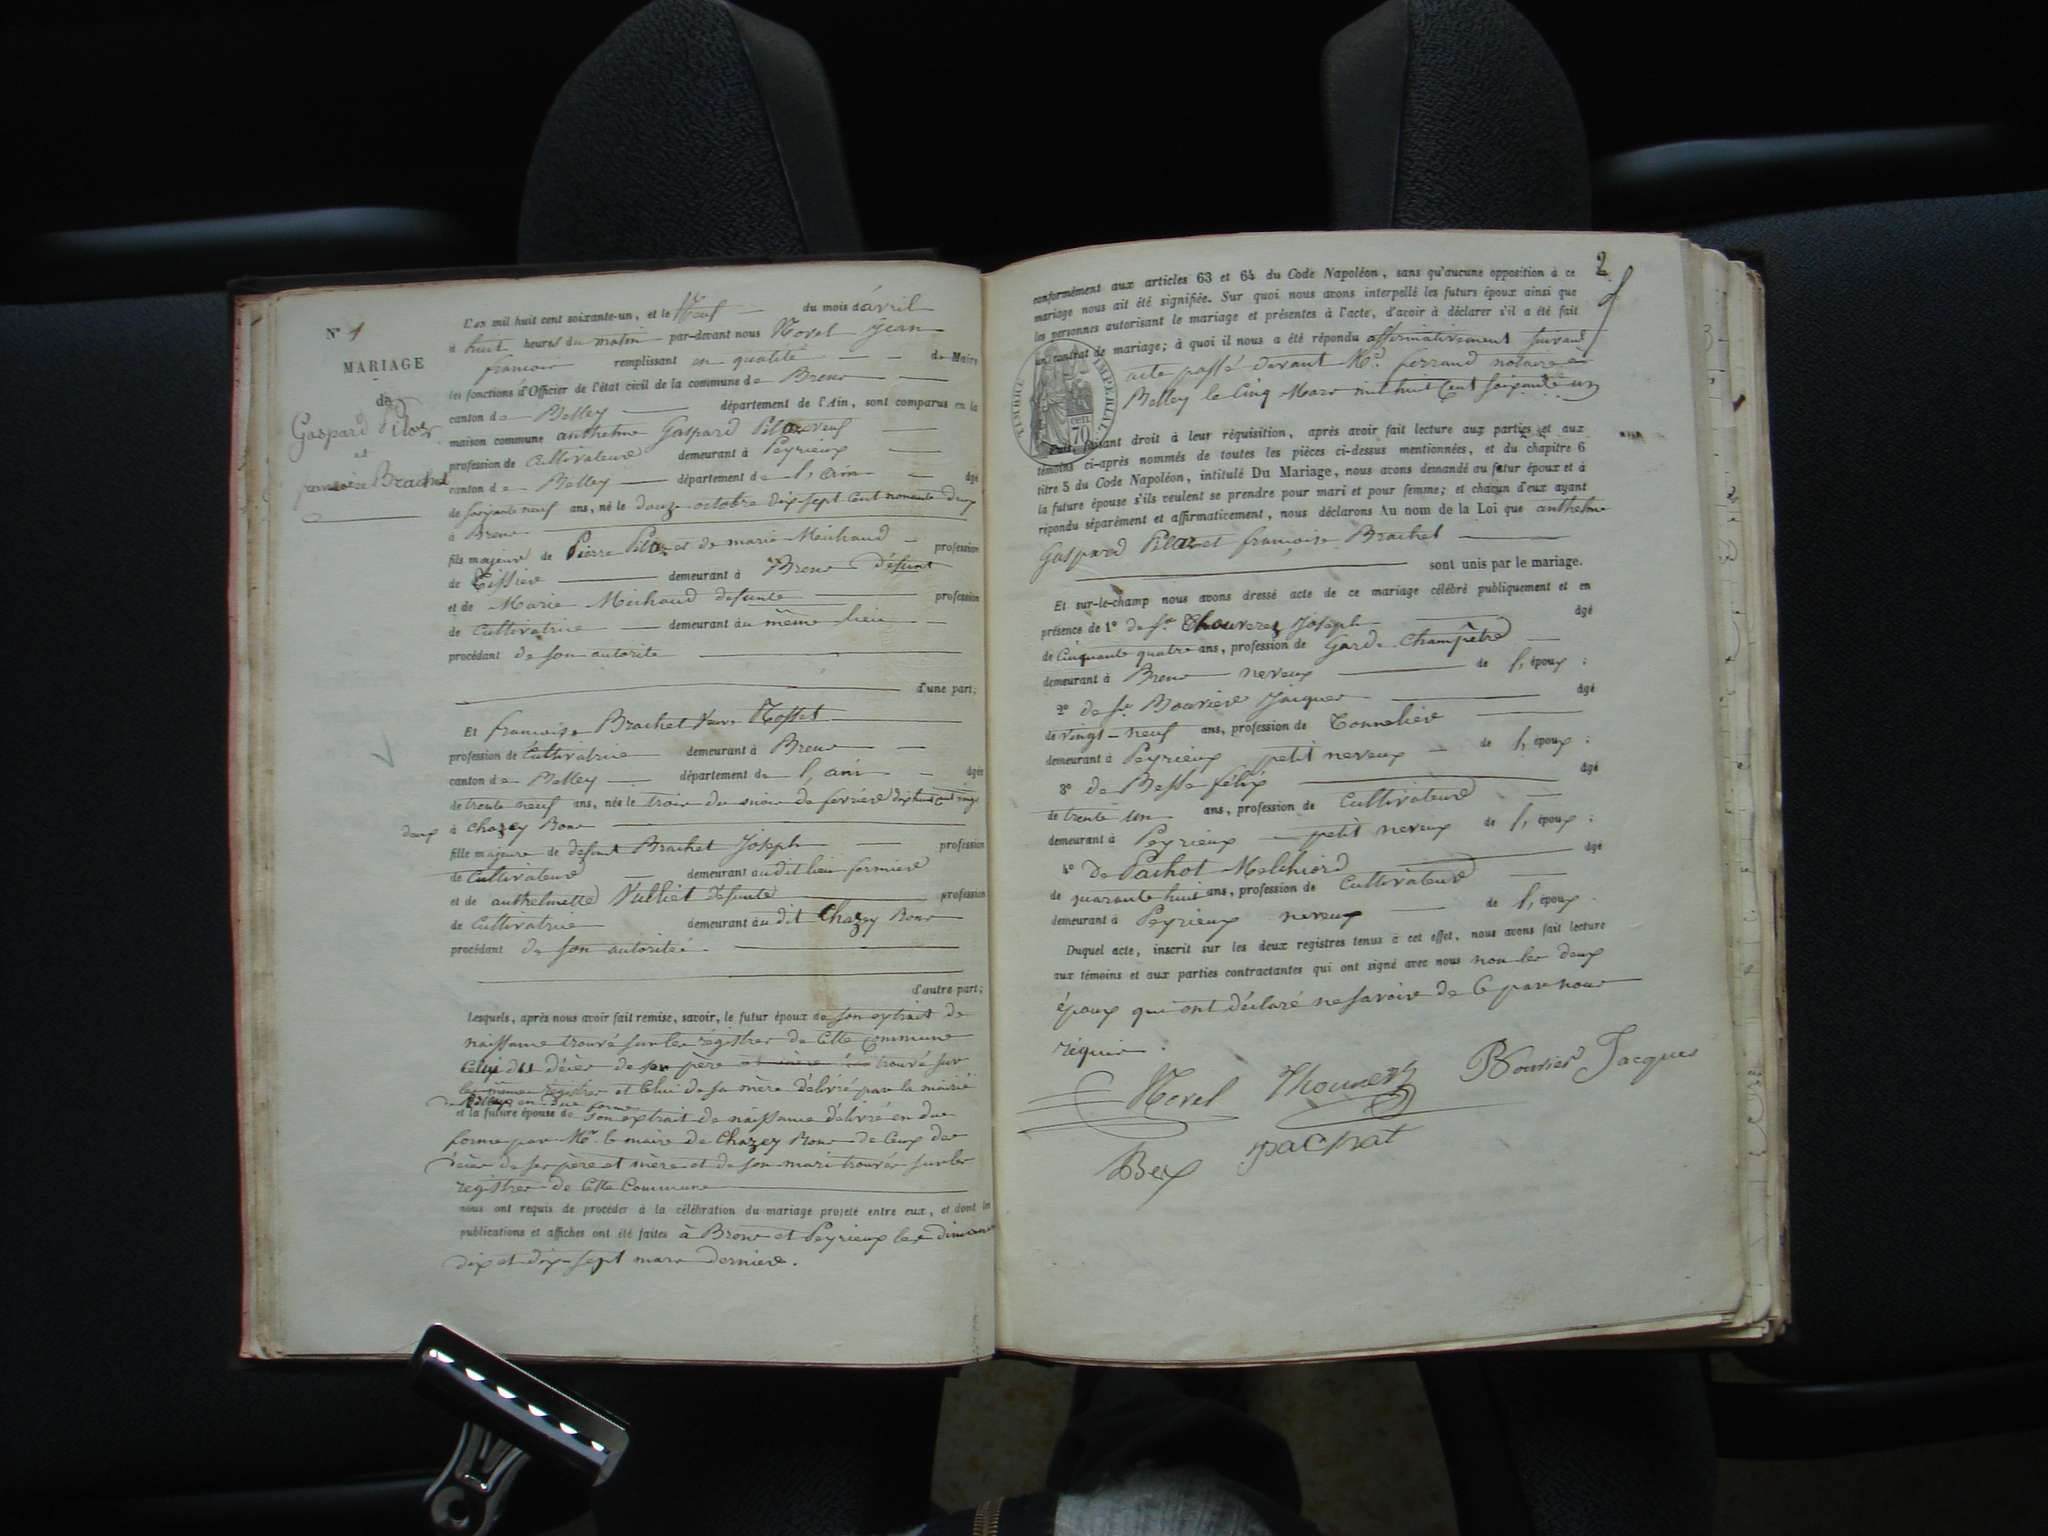 N° 1
MARIAGE
de
Gaspard Pilaz
et
françoise Brachet
L'an mil huit cent soixante-un, et le Neuf du mois d'avril
à huit heures du matin par-devant nous Morel Jean
françois remplissant en qualité de Maire
les fonctions d'Officier de l'état civil de la commune de Brens
canton de Belley département de l'Ain, sont comparus en la
maison commune anthelme Gaspard Pilaz veuf
profession de Cultivateur demeurant à Peyrieux
canton de Belley département de l'ain âgé
de soixante neuf ans, né le douze octobre dix-sept Cent nonante deux
à Brens
fils majeur de Pierre Pilaz et de marie Michaud profession
de Tissier demeurant à Brens Défunt
et de Marie Michaud defunte profession
de Cultivatrice demeurant au même lieu
procédant de son autorité
d'une part;
Et françoise Brachet veuve Rosset
profession de Cultivatrice demeurant à Brens
canton de Belley département de l'ain âgée
de trente neuf ans, née le trois du mois de fevrier dix huit cent vingt
deux à Chazey Bons
fille majeure de defunt Brachet Joseph profession
de Cultivateur demeurant audit lieu fermier
et de anthelmette Vulliet defunte profession
de Cultivatrice demeurant audit Chazey Bons
procédant de son autorité
d'autre part;
Lesquels, après nous avoir fait remise, savoir, le futur époux de son extrait de
naissance trouvé sur les régistres de Cette Commune
Celui du décès de son père trouvé sur
les même registres et Celui de sa mère délivré par la mairie
de en due forme
et la future épouse de son extrait de naissance délivré en due
forme par Mr le maire de Chazey Bons de Ceux des
décès de ses père et mère et de son mari trouvés sur les
registres de Cette Commune
nous ont requis de procéder à la célébration du mariage projeté entre eux, et dont les
publications et affiches ont été faites à Brens et Peyrieux les dimanches
dix et dix-sept mars dernier.
2
conformément aux articles 63 et 64 du Code Napoléon, sans qu'aucune opposition à ce
mariage nous ait été signifiée. Sur quoi nous avons interpellé les futurs époux ainsi que
les personnes autorisant le mariage et présentes à l'acte, d'avoir à déclarer s'il a été fait
un contrat de mariage; à quoi il nous a été répondu affirmativement suivant
acte passé devant Me ferrand notaire à
Belley le Cinq Mars mil huit Cent soixante un
TIMBRE IMPERIAL
70
Puis, faisant droit à leur réquisition, après avoir fait lecture aux parties et aux
témoins ci-après nommés de toutes les pièces ci-dessus mentionnées, et du chapitre 6
titre 5 du Code Napoléon, intitulé Du Mariage, nous avons demandé au futur époux et à
la future épouse s'ils veulent se prendre pour mari et pour femme; et chacun d'eux ayant
répondu séparément et affirmativement, nous déclarons Au nom de la Loi que anthelme
Gaspard Pilaz et françoise Brachet
sont unis par le mariage.
Et sur-le-champ nous avons dressé acte de ce mariage célébré publiquement et en
présence de 1° de Sr Thouverez Joseph âgé
de Cinquante quatre ans, profession de Garde Champêtre
demeurant à Brens neveux de l'époux;
2° de Sr Bouvier Jacques âgé
de vingt-neuf ans, profession de Tonnelier
demeurant à Peyrieux petit neveux de l'époux;
3° de Besse félix âgé
de trente un ans, profession de Cultivateur
demeurant à Peyrieux petit neveux de l'époux;
4° de Pachot Melchiord âgé
de quarante huit ans, profession de Cultivateur
demeurant à Peyrieux neveux de l'époux.
Duquel acte, inscrit sur les deux registres tenus à cet effet, nous avons fait lecture
aux témoins et aux parties contractantes qui ont signé avec nous non les deux
époux qui ont déclaré ne savoir de Ce par nous
réquis.
Morel Thouverez Bouvier Jacques
pachot